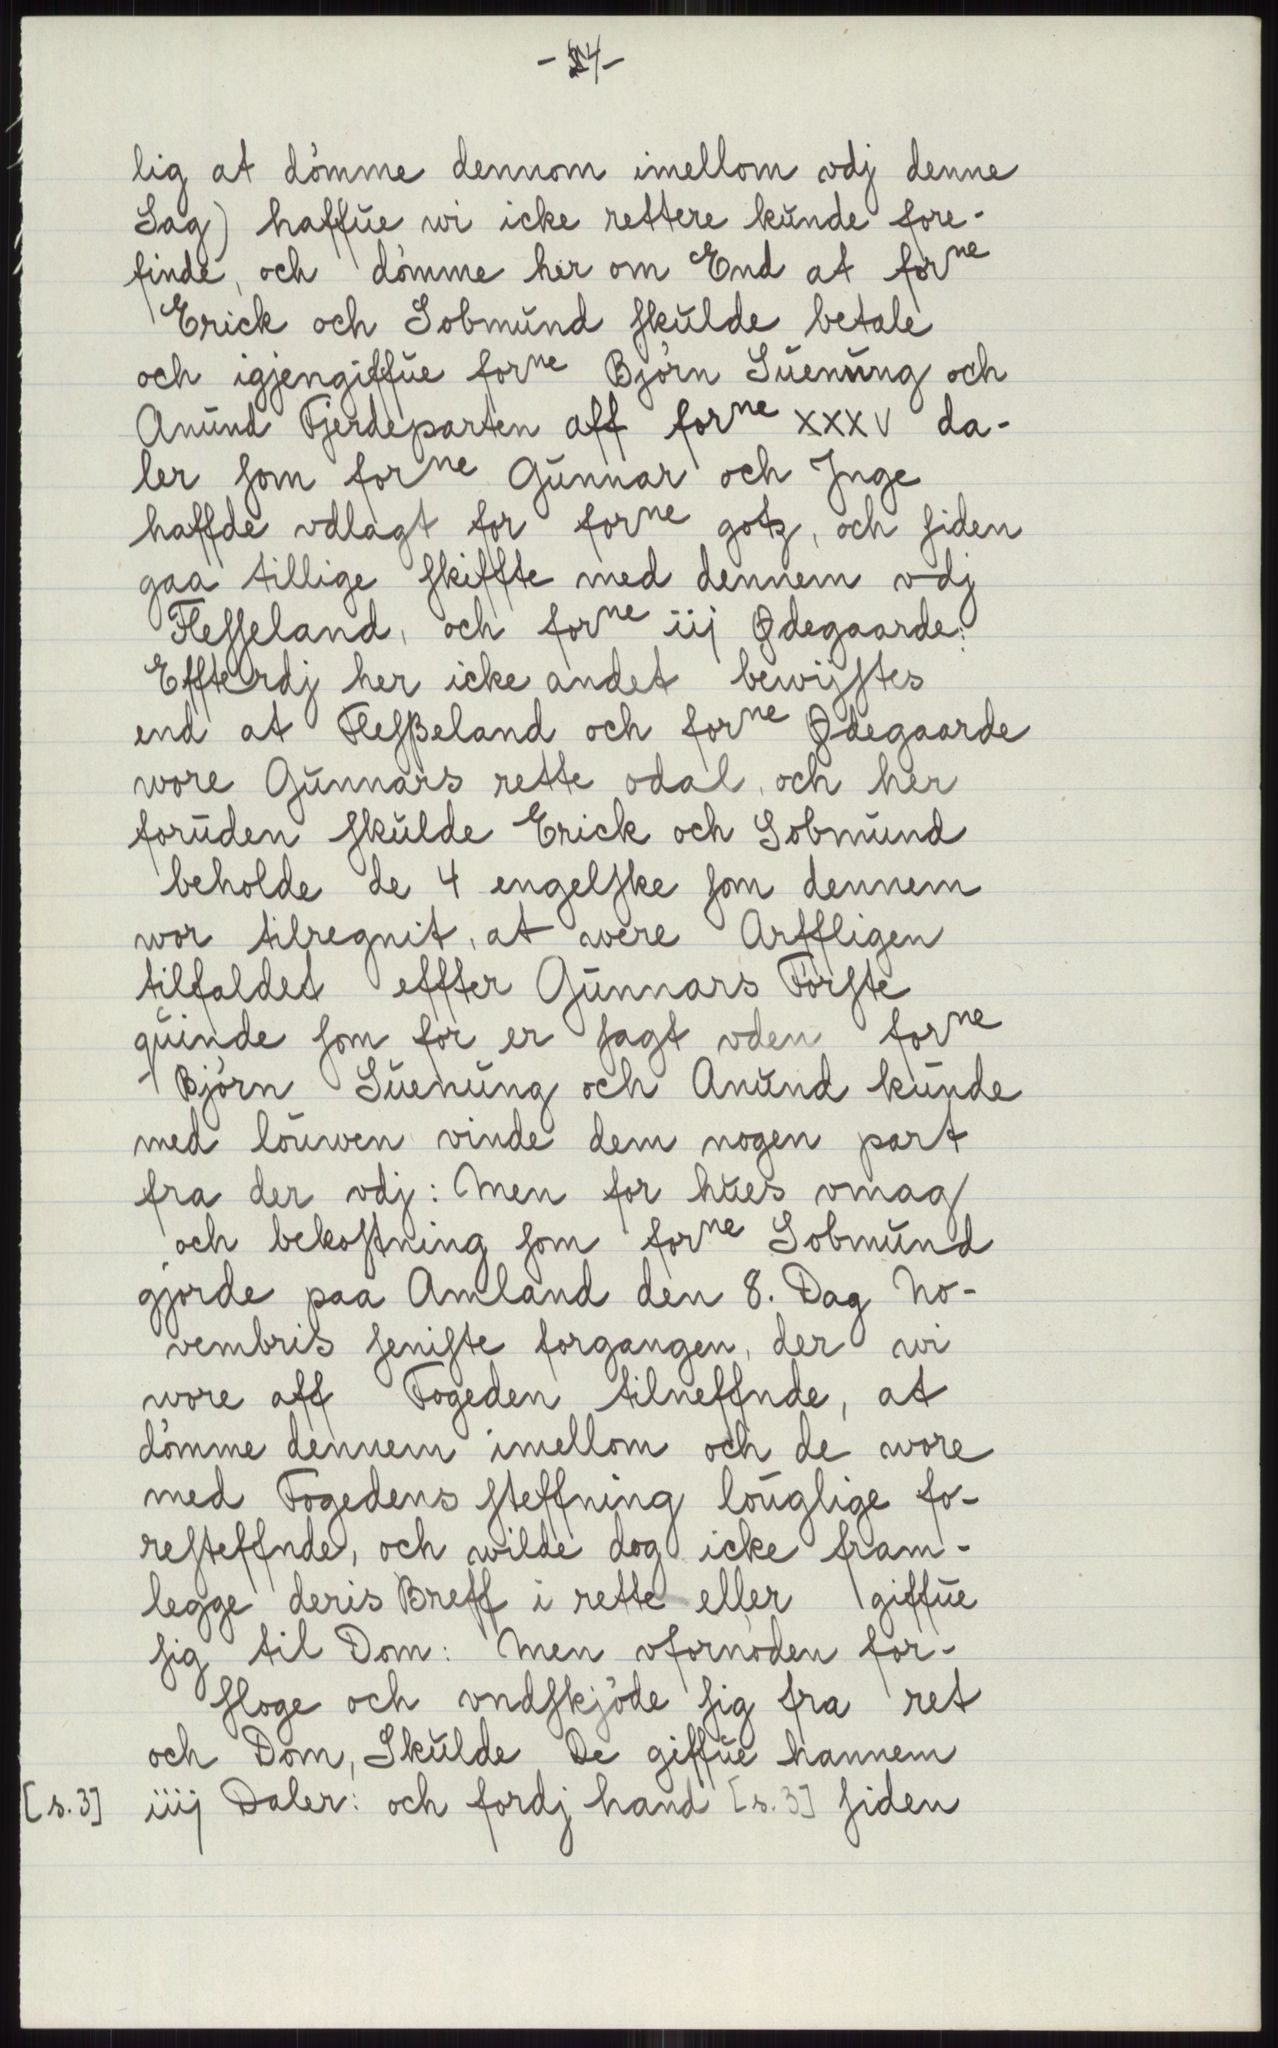 -24-
lig at dømme dennom imellom vdj denne
Sag) haffŭe wi icke rettere kŭnde fore-
finde, och dømme her om End at forne
Erick och Sobmŭnd skŭlde betale
och igjengiffŭe forne Bjørn Sŭenŭng och
Anŭnd Fjerdeparten aff forne XXXV da-
ler som forne Gŭnnar och Inge
haffde vdlagt for forne gotz, och siden
gaa tillige skiffte med dennem vdj
Flesseland, och forne iij Ødegaarde:
Effterdj her icke andet bewijstes
end at Flesßeland och forne Ødegaarde
wore Gŭnnars rette odal, och her
forŭden skŭlde Erick och Sobmŭnd
beholde de 4 engelske som dennem
wor tilregnit, at were Arffligen
tilfaldet effter Gŭnnars Første
qŭinde som for er sagt vden forne
Bjørn Sŭenŭng och Anŭnd kŭnde
med loŭwen vinde dem nogen part
fra der vdj: Men for hŭes vmag
och bekostning som forne Sobmŭnd
gjorde paa Amland den 8. Dag No-
vembris seniste forgangen, der wi
wore aff Fogeden tilneffnde, at
dømme dennem imellom och de wore
med Fogedens steffning loŭglige fo-
resteffnde, och wilde dog icke fram-
legge deris Breff i rette eller giffŭe
sig til Dom: Men vfornøden for-
sloge och vndskjøde sig fra ret
och Dom, Skŭlde De giffŭe hannem
[s.3] iiij Daler: och fordj hand [s.3] siden